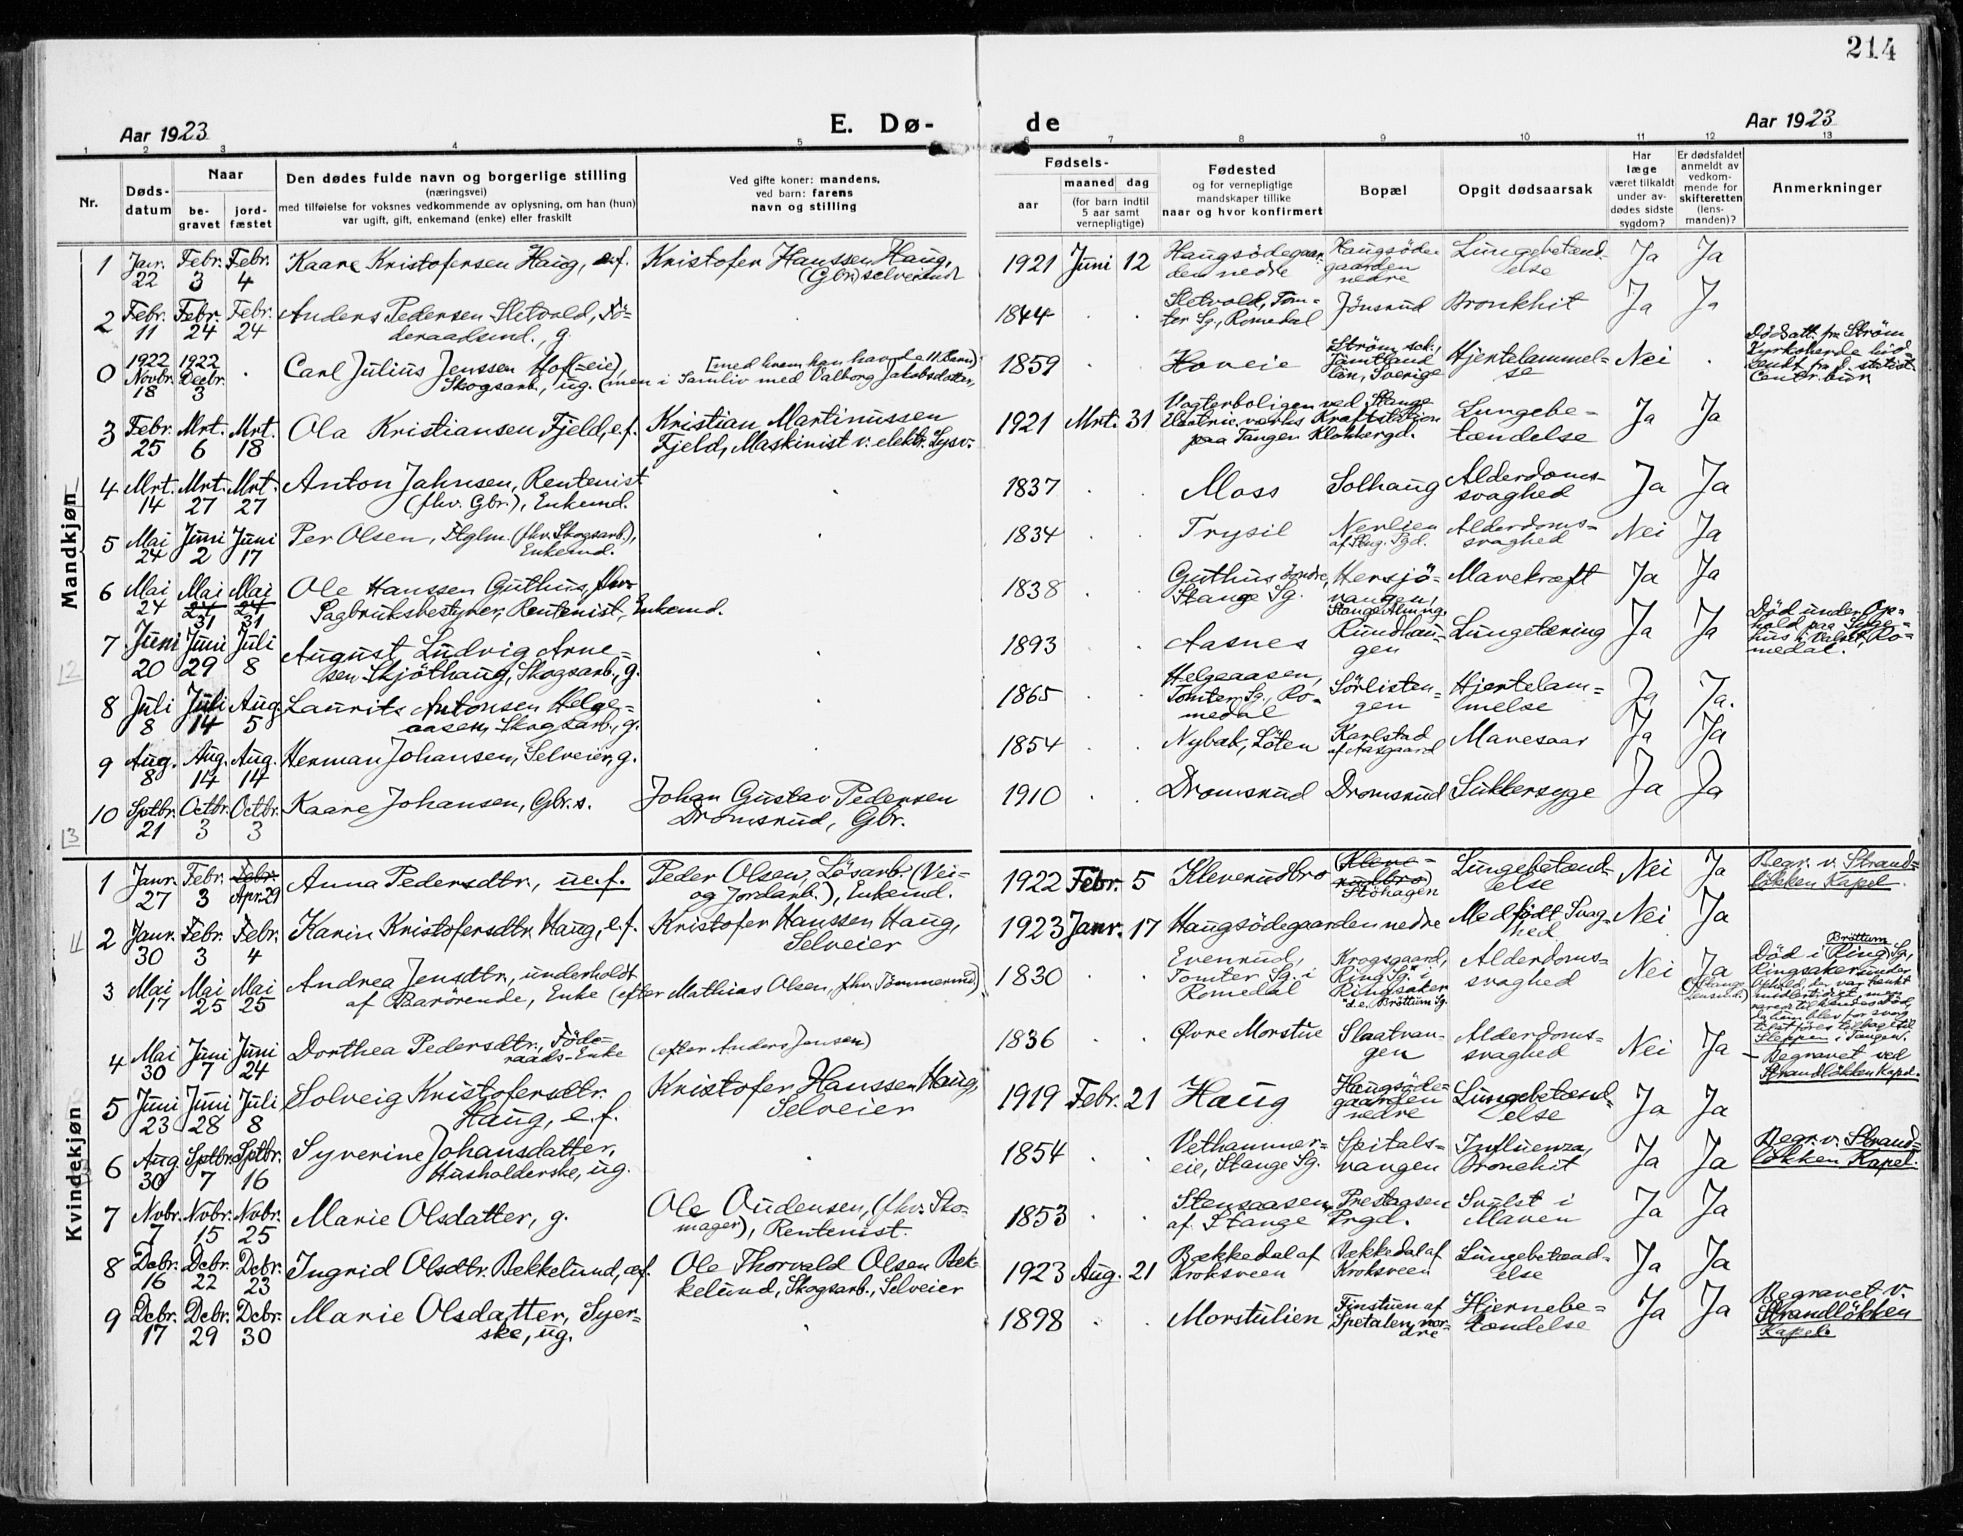 214
Aar 1923
E. Dø-
de
Aar 1923
1 2 3 4 5 6 7 8 9 10 11 12 13
Nr.
Døds-
datum
Naar
be-
gravet
jord-
fæstet
Den dødes fulde navn og borgerlige stilling
(næringsvei)
med tilføielse for voksnes vedkommende av oplysning, om han (hun)
var ugift, gift, enkemand (enke) eller fraskilt
Ved gifte koner: mandens,
ved barn: farens
navn og stilling
Fødsels-
aar
maaned
dag
(for barn indtil
5 aar samt
vernepligtige)
Fødested
og for vernepligtige
mandskaper tillike
naar og hvor konfirmert
Bopæl
Opgit dødsaarsak
Har
læge
været tilkaldt
under av-
dødes sidste
sygdom?
Er dødsfaldet
anmeldt av
vedkom-
mende for
skifteretten
(lens-
manden)?
Anmerkninger
Mandkjøn
1 Janr. 22 Febr. 3 Febr. 4 Kaare Kristofersen Haug, e.f. Kristofer Hanssen Haug,
(Gbr.) selveiend 1921 Juni 12 Haugsødegaar-
den nedre Haugsøde-
gaarden
nedre Lungebetænd-
else Ja Ja
2 Febr. 11 Febr. 24 Febr. 24 Anders Pedersen Sletvold, Fö-
deraadsmd., g. 1844 Sletvold, Tom-
ter Sg., Romedal Jönsrud Bronkhit Ja Ja
0 1922 Novbr. 18 1922 Decbr. 3 Carl Julius Jenssen Hof(-eie), [med hvem han havde 11 barn)
Skogsarb., ug. (men i Samliv med Valborg Jakobsdatter, 1859 Hoveie Ström, sck.,
Jämtland
län, Sverige Hjertelammel-
se Nei Dödsatt. fra Ström
Kyrkoherde hid-
sendt fra d. statist.
Centr.bur.
3 Febr. 25 Mrt. 6 Mrt. 18 Ola Kristiansen Fjeld, e.f. Kristian Martinussen
Fjeld, Maskinist v. elektr. Lysv. 1921 Mrt. 31 Vogterboligen ved Stange
Elektric. værks Kraftstation
paa Tangen Klokkergd. Lungebe-
tændelse Ja Ja
4 Mrt. 14 Mrt. 27 Mrt. 27 Anton Jahnsen, Rentenist
(fhv. Gbr.), Enkemd. 1837 Moss Solhaug Alderdoms-
svaghed Ja Ja
5 Mai 24 Juni 2 Juni 17 Per Olsen, Flglm. (fhv. Skogsarb.),
Enkemd. 1834 Trysil Nerlien
af Stug. Sgd. Alderdoms-
svaghed Nei Ja
6 Mai 24 Mai 24 31 Mai 24 31 Ole Hanssen Guthus, fhv.
Sagbruksbestyrer, Rentenist, Enkemd. 1838 Guthus söndre,
Stange Sg. Hersjö-
vangen,
Stange Alm.ng. Mavekræft Ja Ja
7 Juni 20 Juni 29 Juli 8 August Ludvig Arne-
sen Skjöthaug, Skogsarb., g. 1893 Aasnes Rundhau-
gen Lungetæring Ja Ja Död under Op-
hold paa Syge-
hus i Valset, Ro-
medal.
12
8 Juli 8 Juli 14 Aug. 5 Laurits Antonsen Helge-
aasen, Skogsarb., g. 1865 Helgeaasen,
Tomter Sg., Ro-
medal Sörlisten-
gen Hjertelam-
melse Ja Ja.
9 Aug. 8 Aug. 14 Aug. 14 Herman Johansen, Selveier, g. 1854 Nybak, Löten Karlstad
af Aasgaard Mavesaar Ja Ja
10 Sptbr. 21 Octbr. 3 Octbr. 3 Kaare Johansen, Gbr.s. Johan Gustav Pedersen
Dromsrud, Gbr. 1910 Dromsrud Dromsrud Sukkersyge Ja Ja
13
Kvindekjøn
1 Janr. 27 Febr. 3 Febr. Apr. 29 Anna Pedersdtr., ue.f. Peder Olsen, Lösarb. (Vei-
og Jordarb.), Enkemd. 1922 Febr. 5 Kleverudbro (Kleve-
rudbro)
Stöhagen Lungebetænd-
else Nei Ja Begr. v. Strand-
lökken Kapel.
2 Janr. 30 Febr. 3 Febr. 4 Karin Kristofersdtr. Haug, e.f. Kristofer Hanssen Haug,
Selveier 1923 Janr. 17 Haugsödegaarden nedre Medfödt Svag-
hed Nei Ja
3 Mai 17 Mai 25 Mai 25 Andrea Jensdtr., underholdt
af Barörende, Enke (efter Mathias Olsen, fhv. Tömmermd.) 1830 Evenrud,
Tomter Sg. i
Romedal Krogsgaard,
Ring Sg. i
Ringsaker
d.e. Bröttum Sg. Alderdoms-
svaghed Nei Ja
(Stange
Lensmd.) Död i Ring Sg., Bröttum
Ringsaker under
Ophold, der var tænkt
midlertidigt, men
varede til hendes Död,
da hun blev for svag
til at föres tilbage til
Sleppen i Tangen.
4 Mai 30 Juni 7 Juni 24 Dorthea Pedersdtr., Föde-
raads-Enke (efter Anders Jensen) 1836 Øvre Morstue Slaatvan-
gen Alderdoms-
svaghed Nei Ja – Begravet ved
Strandlökken Kapel.
5 Juni 23 Juni 28 Juli 8 Solveig Kristofersdtr.
Haug, e.f. Kristofer Hanssen Haug,
Selveier 1919 Febr. 21 Haug Haugsöde-
gaarden
nedre Lungebetænd-
else Ja Ja
6 Aug. 30 Sptbr. 7 Sptbr. 16 Syverine Johansdatter,
Husholderske, ug. 1854 Vethammer-
eie, Stange Sg. Spitals-
vangen Influenza,
Bronchit Ja Ja Begr. v. Strand-
lökken Kapel.
7 Novbr. 7 Novbr. 15 Novbr. 25 Marie Olsdatter, g. Ole Audensen, (fhv. Sko-
mager), Rentenist. 1853 Stensaasen
af Stange Prestaasen
Prgd. Svulst i
Maven Ja Ja
8 Dcbr. 16 Dcbr. 22 Dcbr. 23 Ingrid Olsdtr. Bekkelund, e.f. Ole Thorvald Olsen Bek-
kelund, Skogsarb., Selveier 1923 Aug. 21 Bækkedal af
Kroksveen Bækkedal af
Kroksveen Lungebetænd-
else Ja Ja
9 Dcbr. 17 Dcbr. 29 Dcbr. 30 Marie Olsdatter, Syer-
ske, ug. 1898 Morstulien Finstuen af
Spetalen, nor-
dre Hjernebe-
tændelse Ja Ja Begravet v.
Strandlökken
Kapel.